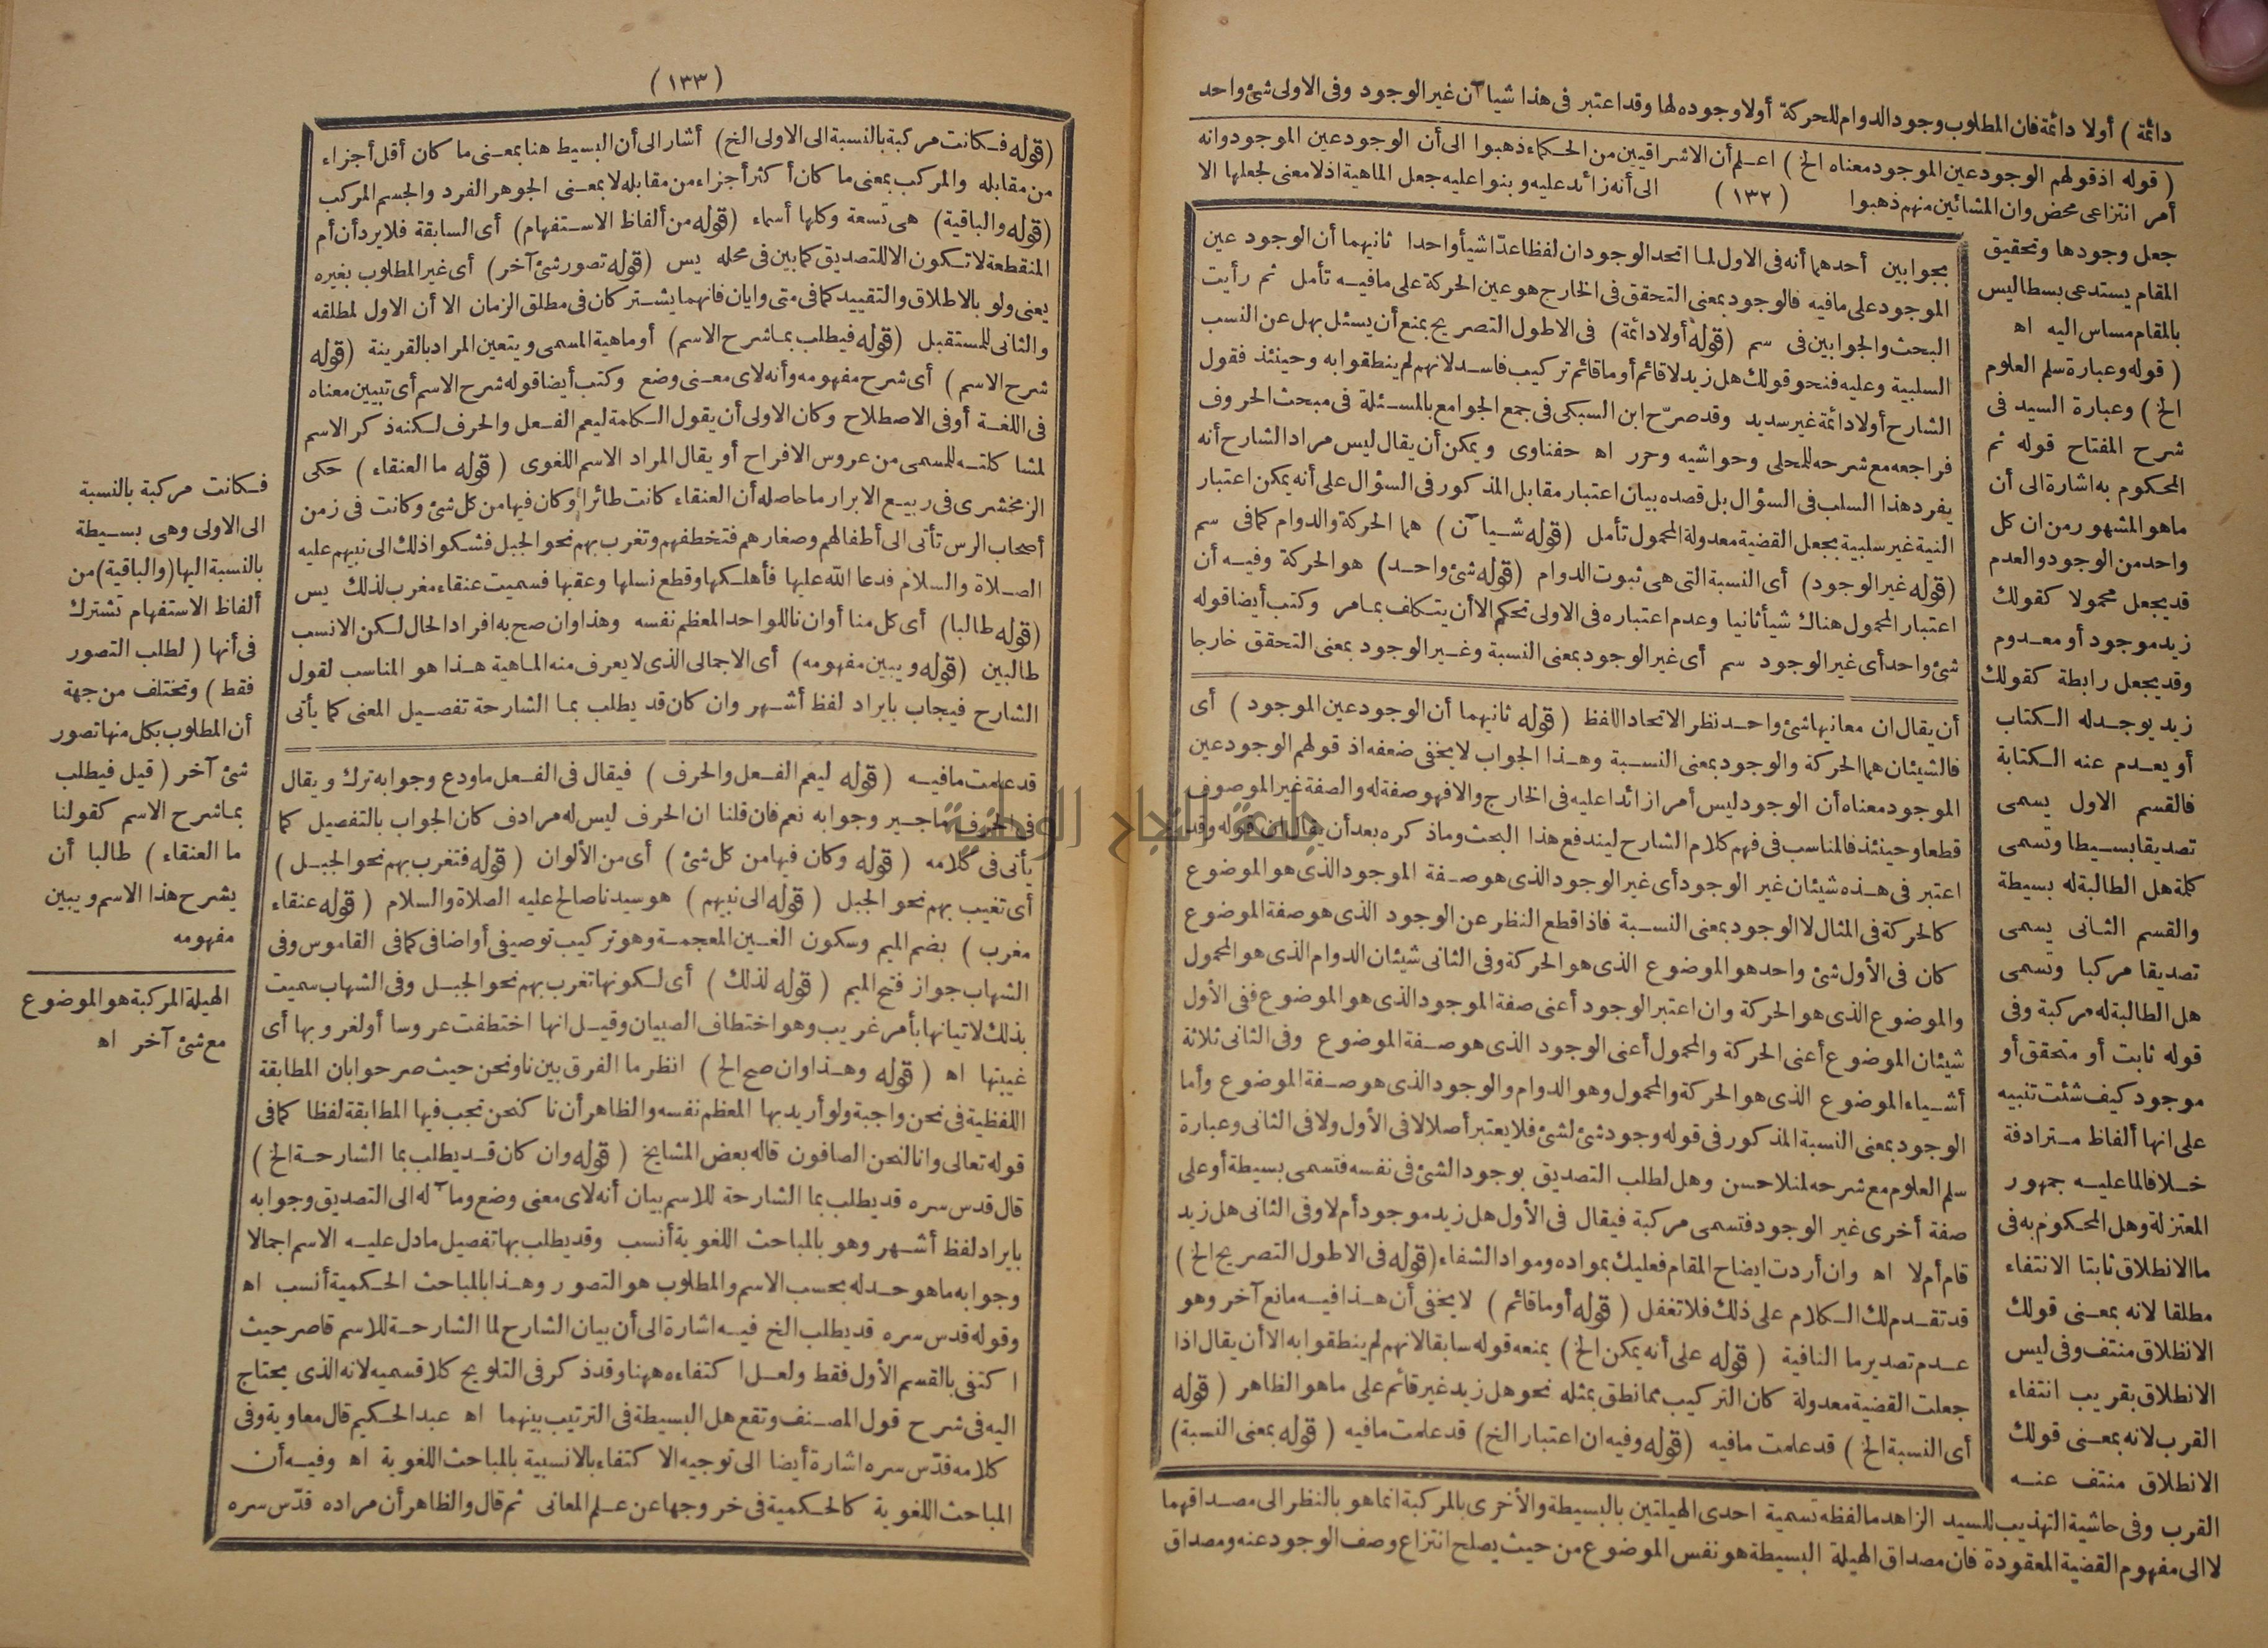 دائمة ) أولا دائمة فان المطلوب وجود الدوام للحركة أولا وجوده لها وقد اعتبر فى هذا شيآن غير الوجود وفى الاولى شئ واحد
( قوله اذ قولهم الوجود عين الموجود معناه الخ ) اعلم أن الاشراقيين من الحكماء ذهبوا الى أن الوجود عين الموجود وانه
أمر انتزاعى محض وان المشائين منهم ذهبوا
( ١٣٢ )
الى أنه زائد عليه وبنوا عليه جعل الماهية اذ لا معنى لجعلها الا
جعل وجودها وتحقيق
المقام يستدعى بسطا ليس
بالمقام مساس اليه اه
( قوله وعبارة سلم العلوم
الخ ) وعبارة السيد فى
شرح المفتاح قوله ثم
المحكوم به اشارة الى أن
ما هو المشهور من ان كل
واحد من الوجود والعدم
قد يجعل محمولا كقولك
زيد موجود أو معدوم
وقد يجعل رابطة كقولك
زيد يوجد له الكتاب
أو يعدم عنه الكتابة
فالقسم الاول يسمى
تصديقا بسيطا وتسمى
كلمة هل الطالبة له بسيطة
والقسم الثانى يسمى
تصديقا مركبا وتسمى
هل الطالبة له مركبة وفى
قوله ثابت أو متحقق أو
موجود كيف شئت تنبيه
على انها ألفاظ مترادفة
خلافا لما عليه جمهور
المعتزلة وهل المحكوم به فى
ما الانطلاق ثابتا الانتفاء
مطلقا لانه بمعنى قولك
الانطلاق منتف وفى ليس
الانطلاق بقريب انتفاء
القرب لانه بمعنى قولك
الانطلاق منتف عنه
القرب وفى حاشية التهذيب للسيد الزاهد مالفظه تسمية احدى الهيلتين بالبسيطة والأخرى بالمركبة انما هو بالنظر الى مصداقهما
لا الى مفهوم القضية المعقودة فان مصداق الهيلة البسيطة هو نفس الموضوع من حيث يصلح انتزاع وصف الوجود عنه ومصداق
بجوابين أحدهما أنه فى الاول لما اتحد الوجودان لفظا عدّا شيأ واحدا ثانيهما أن الوجود عين
الموجود على مافيه فالوجود بمعنى التحقق فى الخارج هو عين الحركة على مافيه تأمل ثم رأيت
البحث والجوابين فى سم (قوله أولا دائمة) فى الاطول التصريح بمنع أن يسئل بهل عن النسب
السلبية وعليه فنحو قولك هل زيد لا قائم أو ما قائم تركيب فاسد لانهم لم ينطقوا به وحينئذ فقول
الشارح أولا دائمة غير سديد وقد صرّح ابن السبكى فى جمع الجوامع بالمسئلة فى مبحث الحروف
فراجعه مع شرحه للمحلى وحواشيه وحرر اه حفناوى ويمكن أن يقال ليس مراد الشارح أنه
يفرد هذا السلب فى السؤال بل قصده بيان اعتبار مقابل المذكور فى السؤال على أنه يمكن اعتبار
النية غير سلبية بجعل القضية معدولة المحمول تأمل (قوله شيآن) هما الحركة والدوام كما فى سم
(قوله غير الوجود) أى النسبة التى هى ثبوت الدوام (قوله شئ واحد) هو الحركة وفيه أن
اعتبار المحمول هناك شيأ ثانيا وعدم اعتباره فى الاولى تحكم الا أن يتكلف بما مر وكتب أيضا قوله
شئ واحد أى غير الوجود سم أى غير الوجود بمعنى النسبة وغير الوجود بمعنى التحقق خارجا
أن يقال ان معانيها شئ واحد نظر الاتحاد اللفظ ( قوله ثانيهما أن الوجود عين الموجود ) أى
فالشيئان هما الحركة والوجود بمعنى النسبة وهذا الجواب لا يخفى ضعفه اذ قولهم الوجود عين
الموجود معناه أن الوجود ليس أمرا زائدا عليه فى الخارج والا فهو صفة له والصفة غير الموصوف
قطعا وحينئذ فالمناسب فى فهم كلام الشارح ليندفع هذا البحث وما ذكره بعد أن يقال ان قوله وقد
اعتبر فى هذه شيئان غير الوجود أى غير الوجود الذى هو صفة الموجود الذى هو الموضوع
كالحركة فى المثال لا الوجود بمعنى النسبة فاذا قطع النظر عن الوجود الذى هو صفة الموضوع
كان فى الأول شئ واحد هو الموضوع الذى هو الحركة وفى الثانى شيئان الدوام الذى هو المحمول
والموضوع الذى هو الحركة وان اعتبر الوجود أعنى صفة الموجود الذى هو الموضوع ففى الأول
شيئان الموضوع أعنى الحركة والمحمول أعنى الوجود الذى هو صفة الموضوع وفى الثانى ثلاثة
أشياء الموضوع الذى هو الحركة والمحمول وهو الدوام والوجود الذى هو صفة الموضوع وأما
الوجود بمعنى النسبة المذكور فى قوله وجود شئ لشئ فلا يعتبر أصلا لا فى الأول ولا فى الثانى وعبارة
سلم العلوم مع شرحه لمنلا حسن وهل لطلب التصديق بوجود الشئ فى نفسه فتسمى بسيطة أو على
صفة أخرى غير الوجود فتسمى مركبة فيقال فى الأول هل زيد موجود أم لا وفى الثانى هل زيد
قام أم لا اه وان أردت ايضاح المقام فعليك بمواده ومواد الشفاء (قوله فى الاطول التصريح الخ)
قد تقدم لك الكلام على ذلك فلا تغفل ( قوله أو ما قائم ) لا يخفى أن هذا فيه مانع آخر وهو
عدم تصدير ما النافية ( قوله على أنه يمكن الخ ) يمنعه قوله سابقا لانهم لم ينطقوا به الا أن يقال اذا
جعلت القضية معدولة كان التركيب مما نطق بمثله نحو هل زيد غير قائم على ما هو الظاهر ( قوله
أى النسبة الخ ) قد علمت مافيه (قوله وفيه ان اعتبار الخ) قد علمت مافيه ( قوله بمعنى النسبة)
( ١٣٣ )
(قوله فكانت مركبة بالنسبة الى الاولى الخ) أشار الى أن البسيط هنا بمعنى ما كان أقل أجزاء
من مقابله والمركب بمعنى ما كان أكثر أجزاء من مقابله لا بمعنى الجوهر الفرد والجسم المركب
(قوله والباقية) هى تسعة وكلها أسماء (قوله من ألفاظ الاستفهام) أى السابقة فلا يرد أن أم
المنقطعة لا تكون الا للتصديق كما بين فى محله يس (قوله تصور شئ آخر) أى غير المطلوب بغيره
يعنى ولو بالاطلاق والتقييد كما فى متى وايان فانهما يشتركان فى مطلق الزمان الا أن الاول لمطلقه
والثانى للمستقبل (قوله فيطلب بما شرح الاسم) أو ماهية المسمى ويتعين المراد بالقرينة (قوله
شرح الاسم ) أى شرح مفهومه وأنه لاى معنى وضع وكتب أيضا قوله شرح الاسم أى تبيين معناه
فى اللغة أو فى الاصطلاح وكان الاولى أن يقول الكلمة ليعم الفعل والحرف لكنه ذكر الاسم
لمشاكلته للمسمى من عروس الافراح أو يقال المراد الاسم اللغوى (قوله ما العنقاء ) حكى
الزمخشرى فى ربيع الابرار ما حاصله أن العنقاء كانت طائرا وكان فيها من كل شئ وكانت فى زمن
أصحاب الرس تأتى الى أطفالهم وصغارهم فتخطفهم وتغرب بهم نحو الجبل فشكوا ذلك الى نبيهم عليه
الصلاة والسلام فدعا الله عليها فأهلكها وقطع نسلها وعقبها فسميت عنقاء مغرب لذلك يس
(قوله طالبا) أى كل منا أو ان نا للواحد المعظم نفسه وهذا وان صح به افراد الحال لكن الانسب
طالبين (قوله ويبين مفهومه) أى الاجمالى الذى لا يعرف منه الماهية هذا هو المناسب لقول
الشارح فيجاب بايراد لفظ أشهر وان كان قد يطلب بما الشارحة تفصيل المعنى كما يأتى
قد علمت مافيه ( قوله ليعم الفعل والحرف ) فيقال فى الفعل ما ودع وجوابه ترك ويقال
فى الحرف ما جير وجوابه نعم فان قلنا ان الحرف ليس له مرادف كان الجواب بالتفصيل كما
يأتى فى كلامه ( قوله وكان فيها من كل شئ ) أى من الألوان ( قوله فتغرب بهم نحو الجبل )
أى تغيب بهم نحو الجبل ( قوله الى نبيهم ) هو سيدنا صالح عليه الصلاة والسلام ( قوله عنقاء
مغرب ) بضم الميم وسكون الغين المعجمة وهو تركيب توصيفى أو اضافى كما فى القاموس وفى
الشهاب جواز فتح الميم ( قوله لذلك ) أى لكونها تغرب بهم نحو الجبل وفى الشهاب سميت
بذلك لاتيانها بأمر غريب وهو اختطاف الصبيان وقيل انها اختطفت عروسا أو لغروبها أى
غيبتها اه ( قوله وهذا وان صح الخ ) انظر ما الفرق بين نا ونحن حيث صرحوا بان المطابقة
اللفظية فى نحن واجبة ولو أريد بها المعظم نفسه والظاهر أن نا كنحن تجب فيها المطابقة لفظا كما فى
قوله تعالى وانا لنحن الصافون قاله بعض المشايخ ( قوله وان كان قد يطلب بما الشارحة الخ )
قال قدس سره قد يطلب بما الشارحة للاسم بيان أنه لاى معنى وضع ومآله الى التصديق وجوابه
بايراد لفظ أشهر وهو بالمباحث اللغوية أنسب وقد يطلب بها تفصيل مادل عليه الاسم اجمالا
وجوابه ما هو حد له بحسب الاسم والمطلوب هو التصور وهذا بالمباحث الحكمية أنسب اه
وقوله قدس سره قد يطلب الخ فيه اشارة الى أن بيان الشارح لما الشارحة للاسم قاصر حيث
اكتفى بالقسم الأول فقط ولعل اكتفاءه ههنا وقد ذكر فى التلويح كلا قسميه لانه الذى يحتاج
اليه فى شرح قول المصنف وتقع هل البسيطة فى الترتيب بينهما اه عبد الحكيم قال معاوية وفى
كلامه قدّس سره اشارة أيضا الى توجيه الاكتفاء بالانسبية بالمباحث اللغوية اه وفيه أن
المباحث اللغوية كالحكمية فى خروجها عن علم المعانى ثم قال والظاهر أن مراده قدّس سره
فكانت مركبة بالنسبة
الى الاولى وهى بسيطة
بالنسبة اليها (والباقية) من
ألفاظ الاستفهام تشترك
فى أنها ( لطلب التصور
فقط ) وتختلف من جهة
أن المطلوب بكل منها تصور
شئ آخر ( قيل فيطلب
بما شرح الاسم كقولنا
ما العنقاء ) طالبا أن
يشرح هذا الاسم ويبين
مفهومه
الهيلة المركبة هو الموضوع
مع شئ آخر اه
جامعة النجاح الوطنية